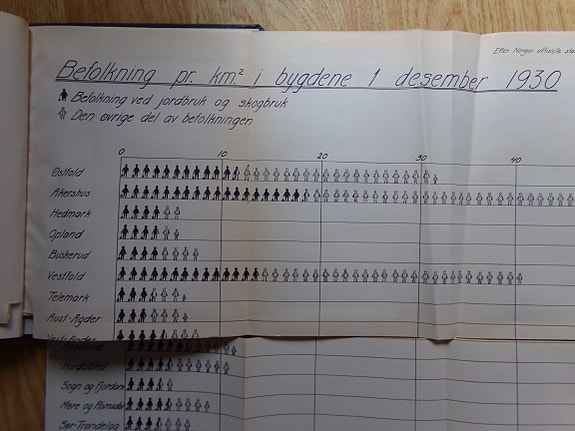 Efter Norges offisielle
Befolkning pr. km.² i bygdene 1 desember 1930
Befolkning ved jordbruk og skogbruk
Den øvrige del av befolkningen
0 10 20 30 40
Østfold
Akershus
Hedmark
Opland
Buskerud
Vestfold
Telemark
Aust-Agder
Vest-Agder
Hordaland
Sogn og Fjordane
Møre og Romsdal
Sør-Trøndelag